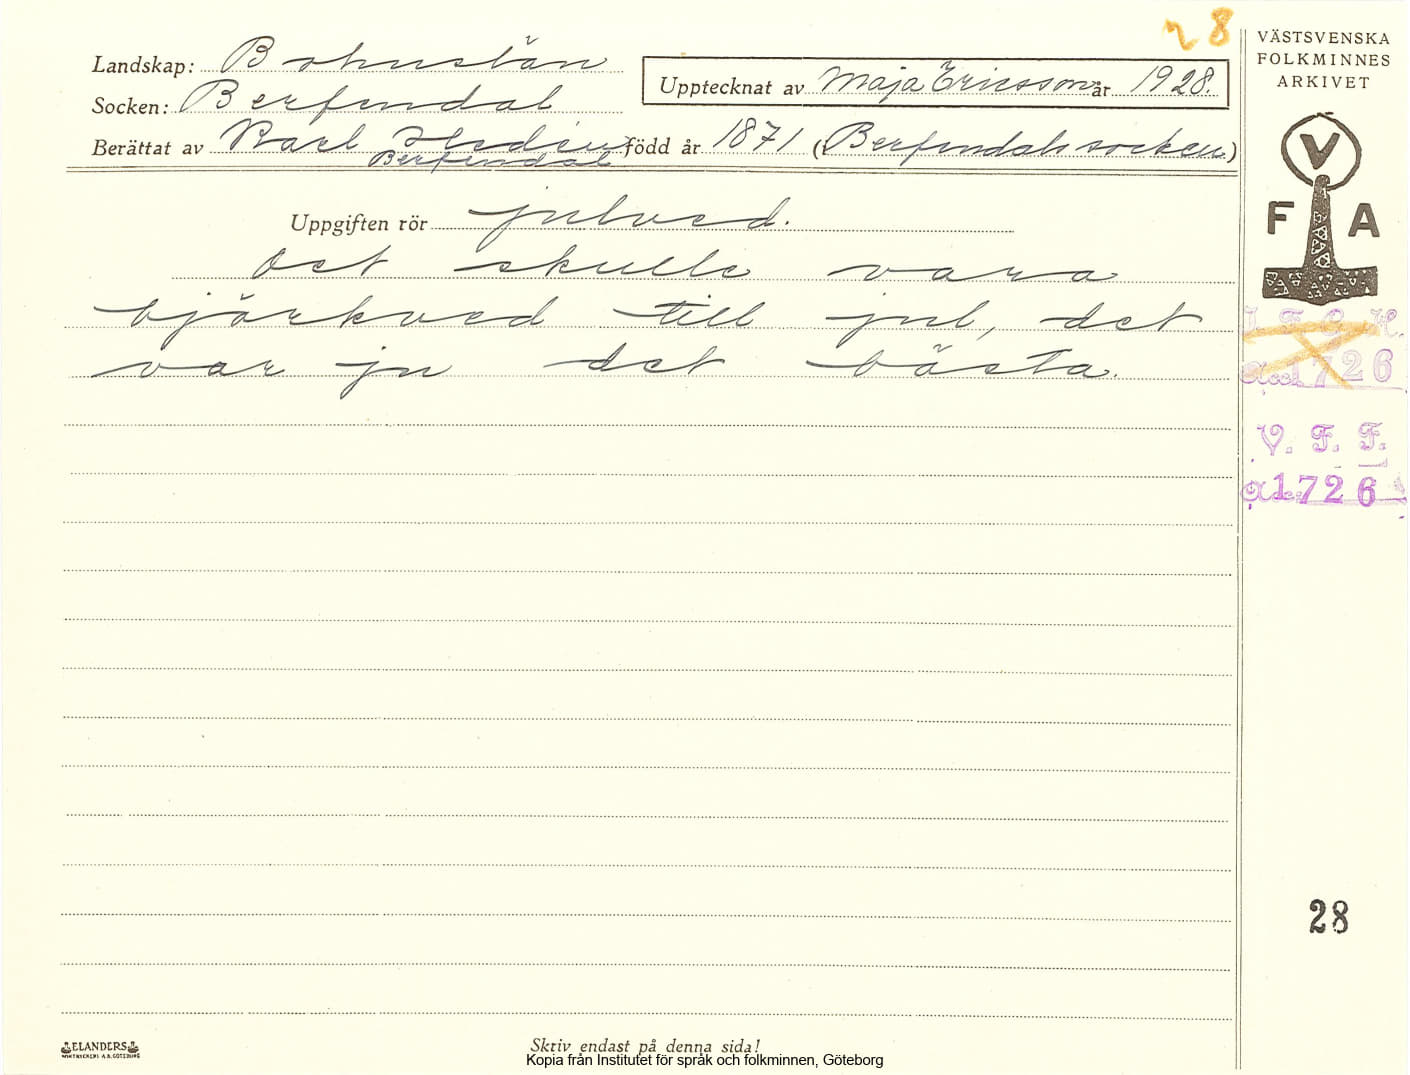 28
Landskap: Bohuslän
Upptecknat av Maja Ericsson år 1928.
Socken: Berfendal
Berättat av Karl Hedén född år 1871 (Berfendals socken)
Berfendal
Uppgiften rör julved.
Det skulle vara
björkved till jul, det
var ju det bästa.
VÄSTSVENSKA
FOLKMINNES
ARKIVET
V
F A
1726
V. F. F.
acc. 1726
28
ELANDERS
Skriv endast på denna sida!
Kopia från Institutet för språk och folkminnen, Göteborg